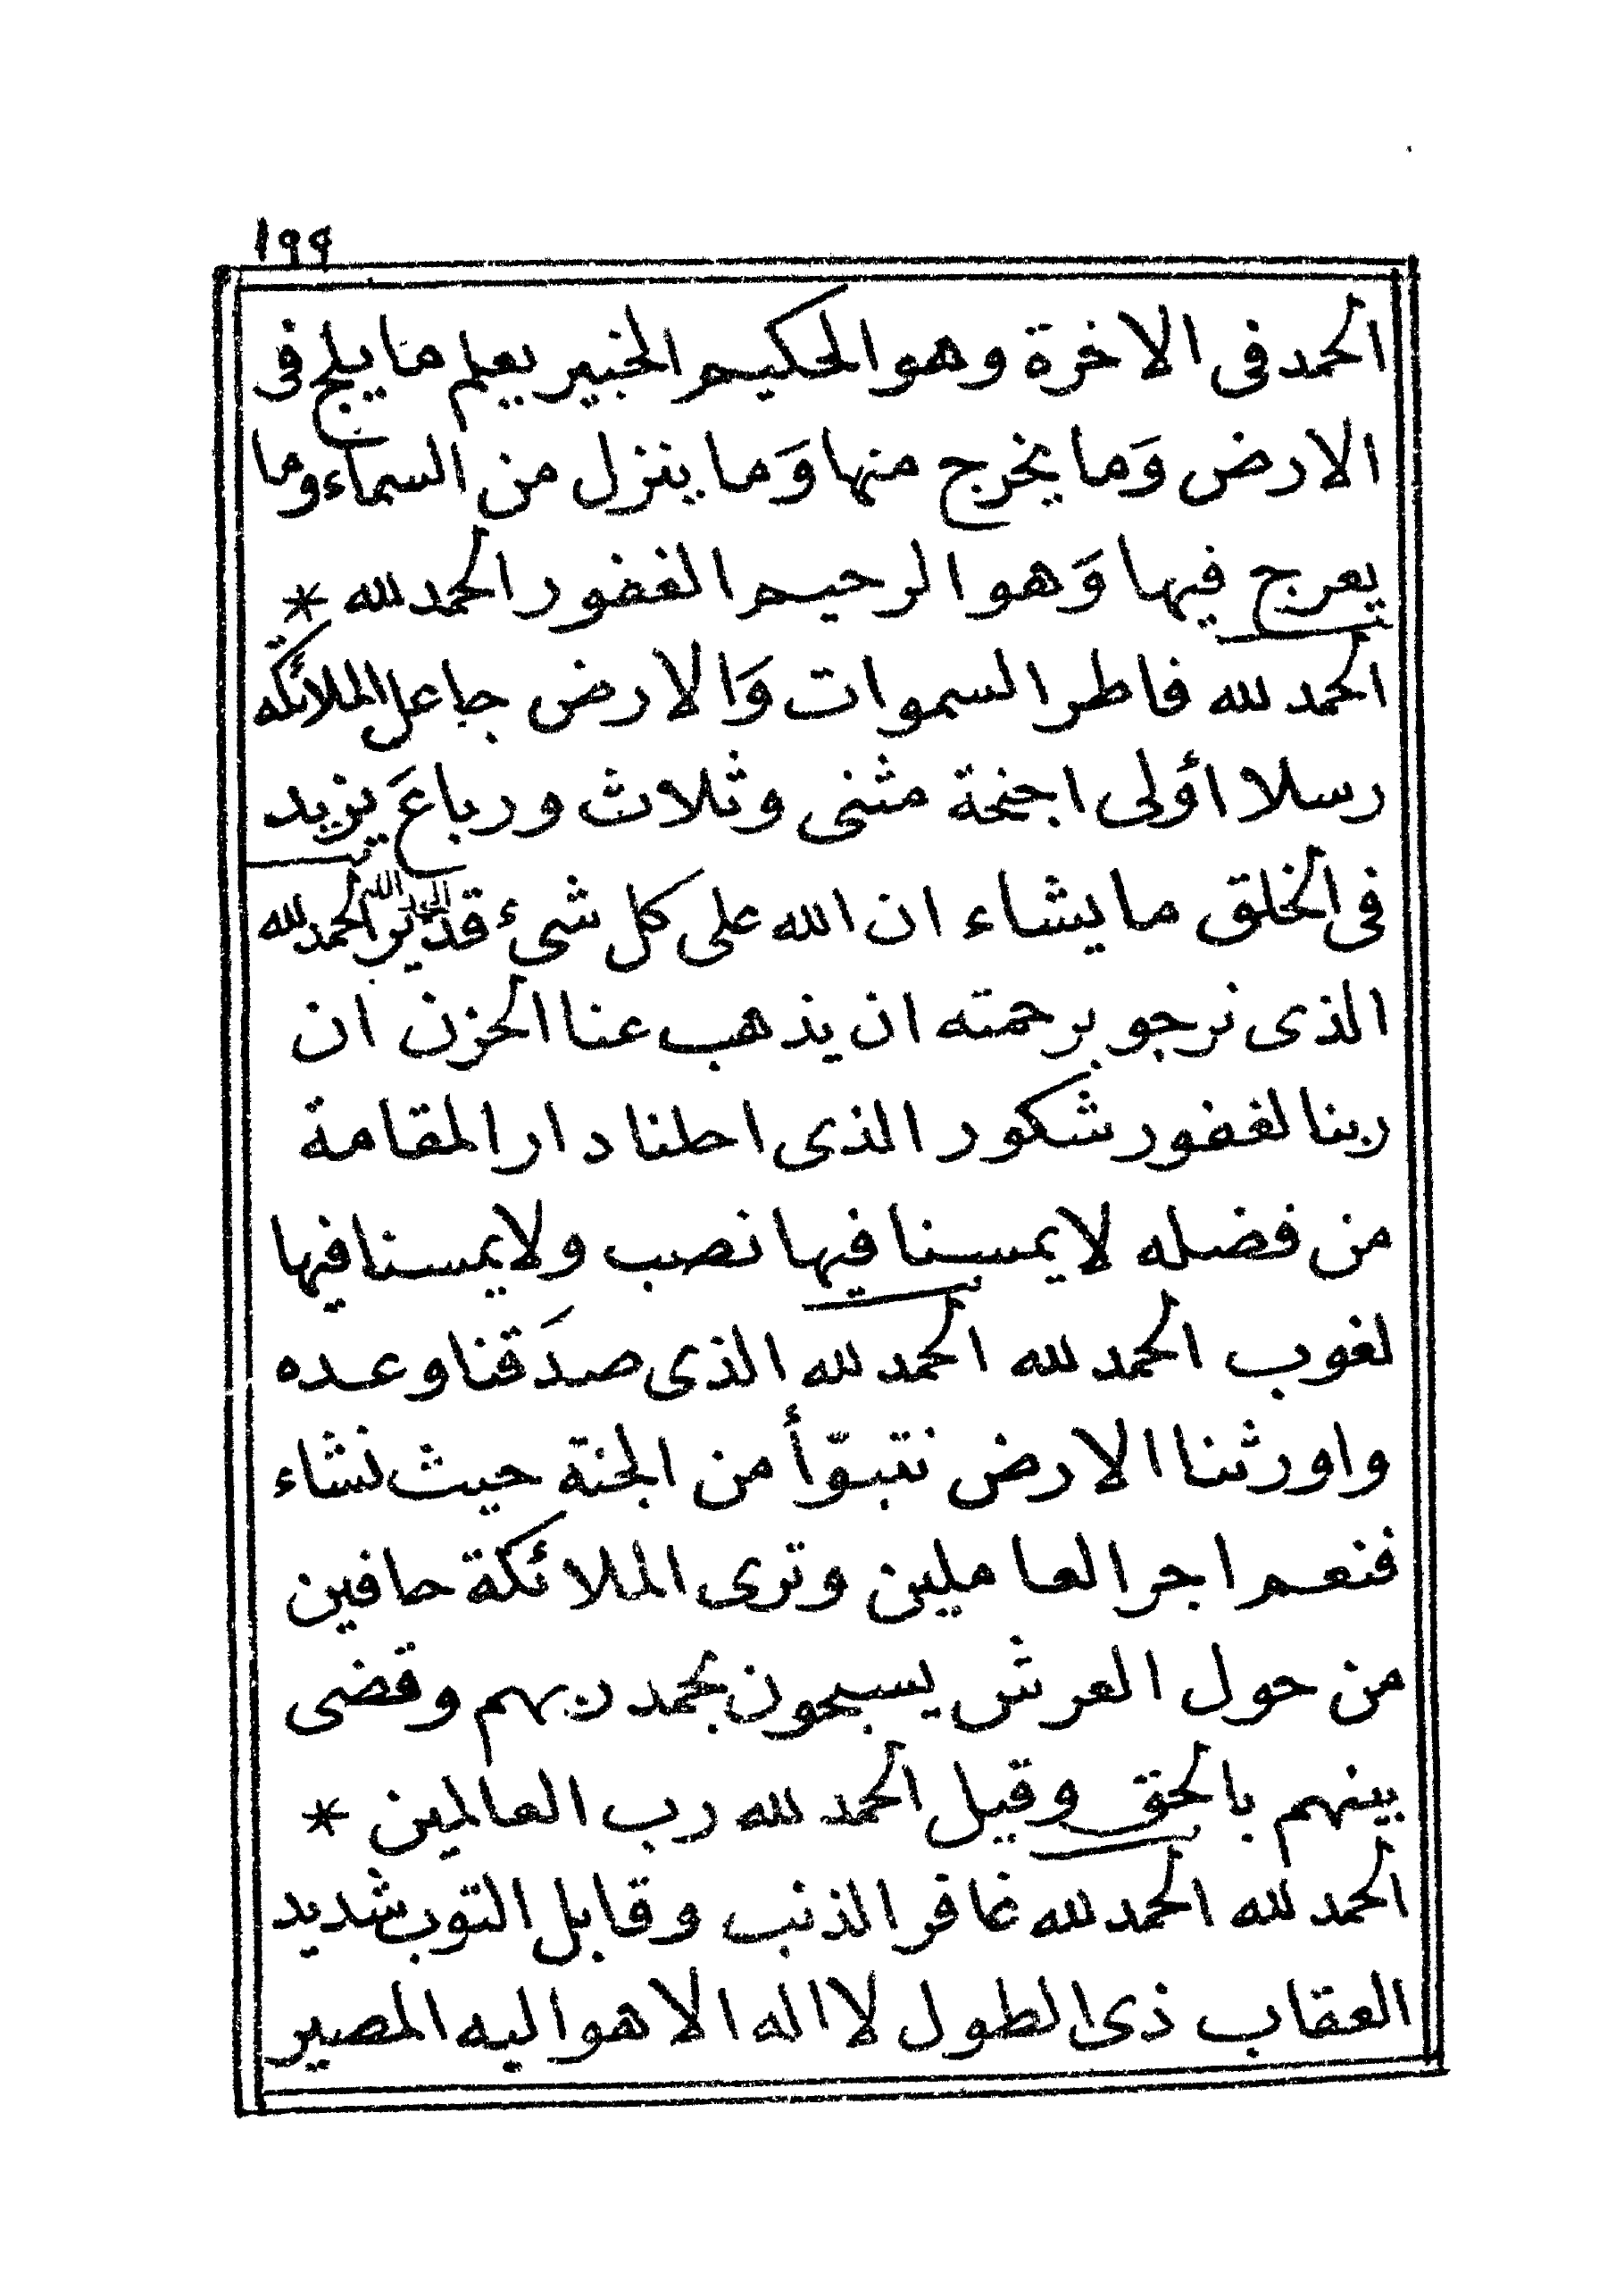 ١٩٩
الحمد فى الاخرة وهو الحكيم الخبير يعلم ما يلج فى
الارض وَما يخرج منها وَما ينزل من السماء وما
يعرج فيها وَهو الرحيم الغفور الحمد لله *
الحمد لله فاطر السموات وَالارض جاعل الملائكه
رسلا اؤلى اجنحة مثنى وثلاث ورباعَ يزيد
فى الخلق ما يشاء ان الله على كل شىء قدير الحمد لله الحمد لله
الذى نرجو برحمته ان يذهب عنا الحزن ان
ربنا لغفور شكور الذى احلنا دار المقامة
من فضله لا يمسنا فيها نصب ولا يمسنا فيها
لغوب الحمد لله الحمد لله الذى صدَقنا وعده
واورثنا الارض نتبوّأ من الجنة حيث نشاء
فنعم اجر العاملين وترى الملائكة حافين
من حول العرش يسبحون بحمد ربهم وقضى
بينهم بالحق وقيل الحمد لله رب العالمين *
الحمد لله الحمد لله غافر الذنب وقابل التوب شديد
العقاب ذى الطول لا اله الا هو اليه المصير